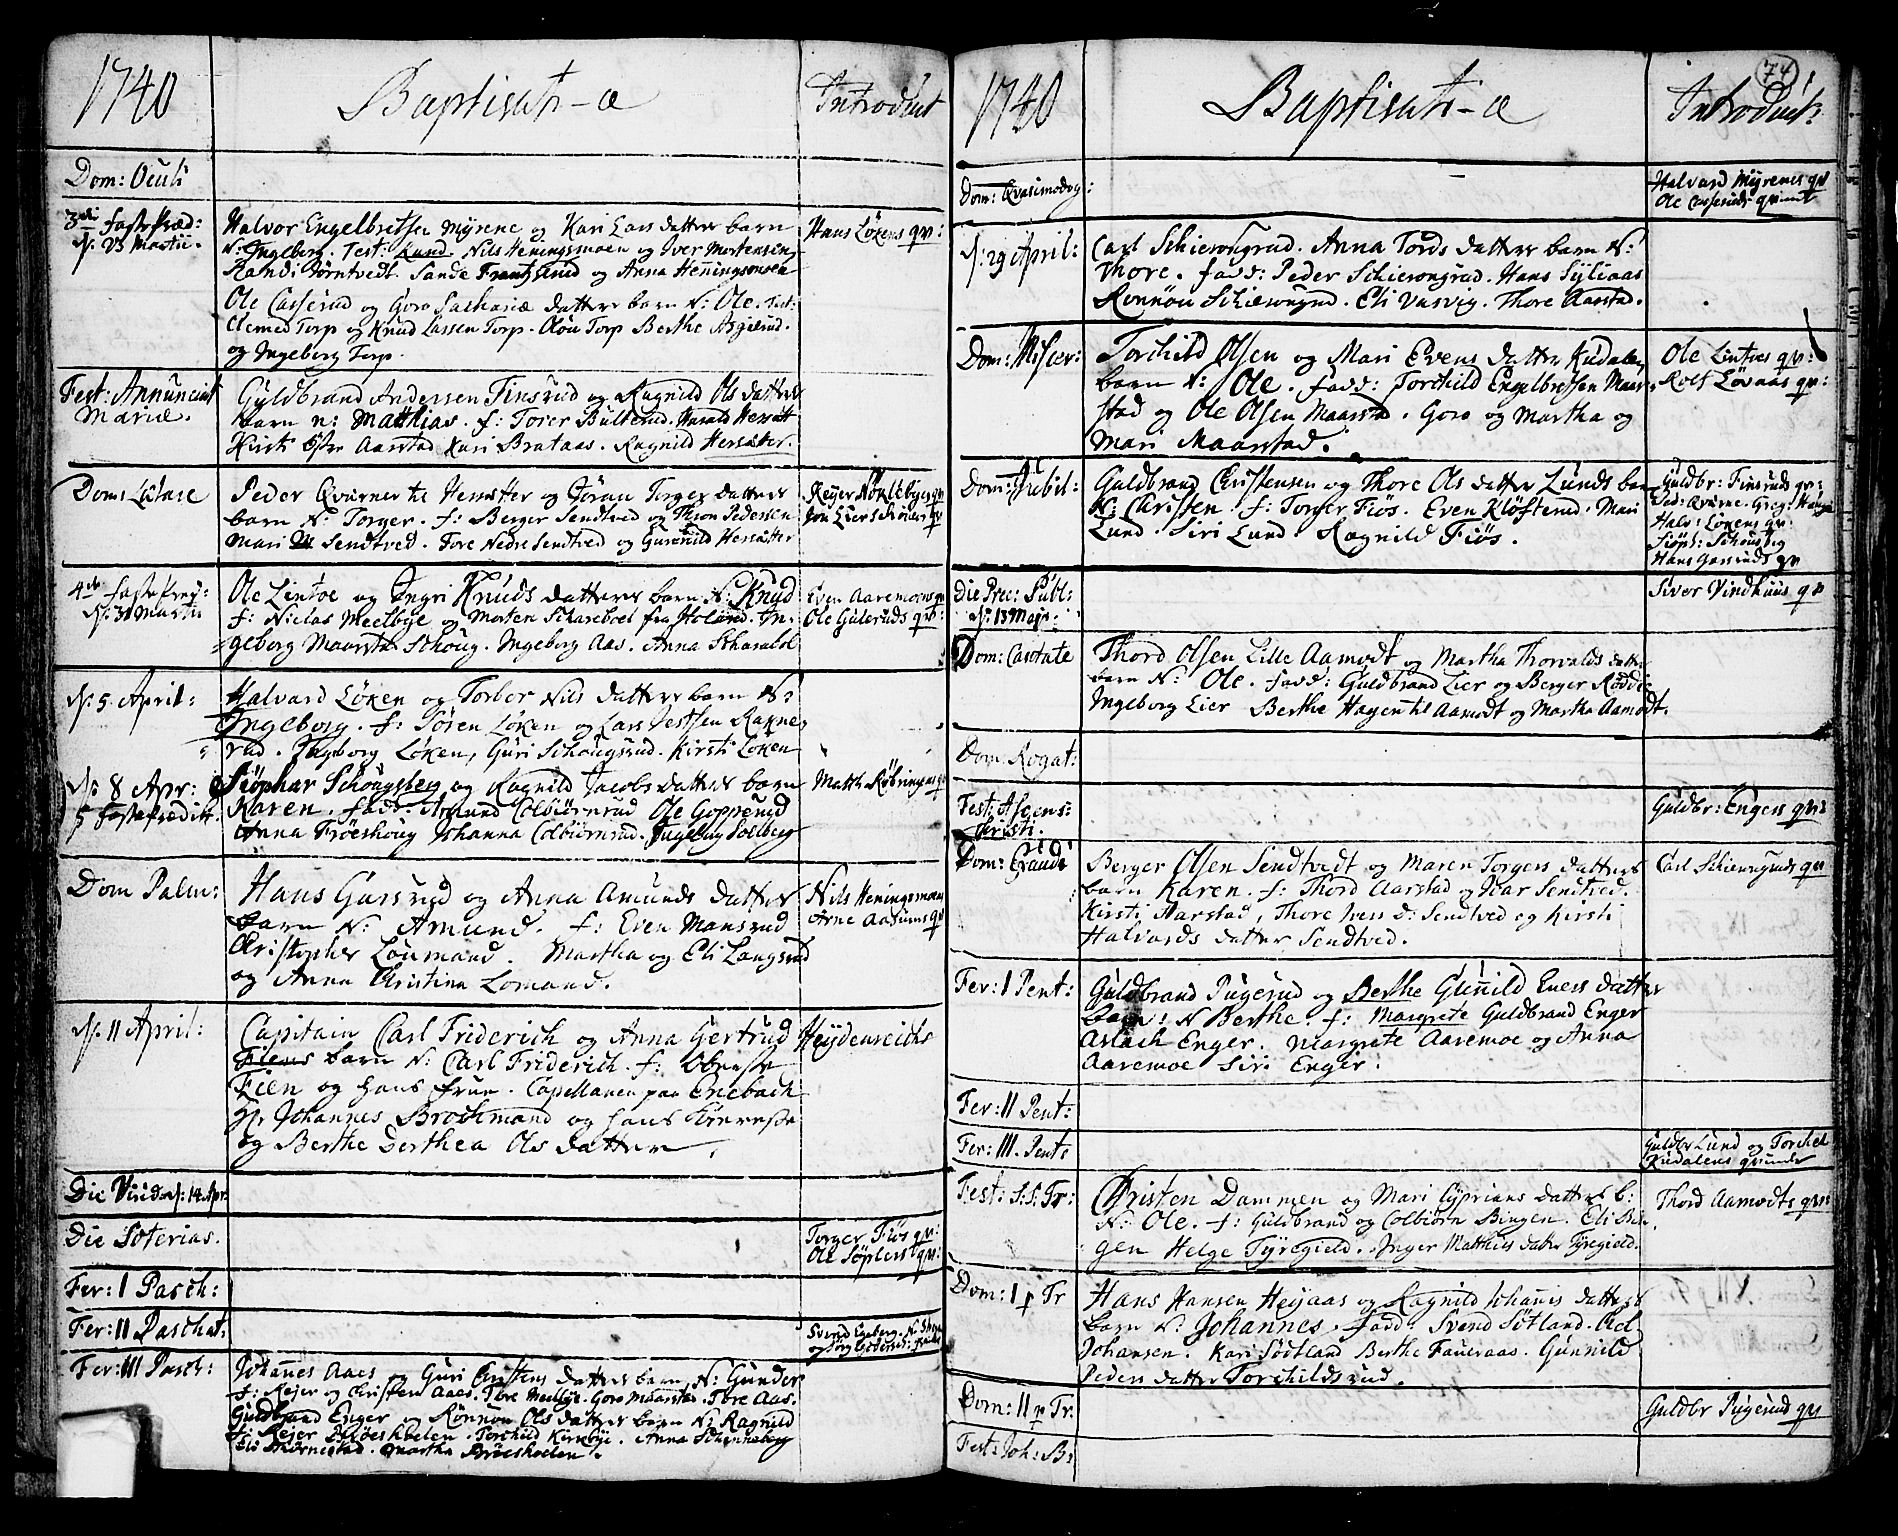 1740
Baptisati-æ
Introduct
Dom: Oculi
3die Fastepræd:
d: 23 Martii.
Halvor Engelbretsen Myrene og Kari Lars datters barn
N: Ingeborg. Test: Lund. Nils Heningsmoen og Iver Mortensen
Randi Törntvedt. Sande Frantzlund og Anna Henningsmoen
Hans Lökens qv:
Ole Casserud og Goro Sachariæ datters barn N: Ole. Test:
Clemed Torp og Knud Lassen Torp. Olou Torp Berthe Asgierud.
og Ingeborg Torp.
Fest: Annunciat
Mariæ.
Guldbrand Andersen Finsrud og Ragnild Ols datters
barn n: Matthias. f: Torer Bulterud. Harald Hersætt
Kirsti Östre Aarstad Kari Brataas. Ragnild Hersætter.
Dom: Lætare
Peder Qværner til Hersætter og Jöran Torgers datters
barn N: Torger. f: Berger Sendtved og Thron Pedersen
Mari Sendtved. Tore Nedre Sendtved og Gunnild Hersætter
Reyer Nöklebyes qv
Jon Liers Skönes qv
4de Fastepræ:
d: 31 Martii
Ole Lintoe og Ingri Knuds datters barn N: Knud
f: Niclas Meelbye og Morten Schareboel fra Holand. In-
geborg Maarsta Schoug. Ingeborg Aas. Anna Scharebol
Even Aaremoens qv
Ole Guleruds qv:
d: 5 April:
Halvard Löken og Torbor Nils datters barn N:
Ingeborg. f: Sören Löken og Lars Jestsen Rakne-
rud. Ingeborg Löken, Guri Schougsrud. Kirsti Löken
d: 8 Apr:
5 Fastepræditt.
Siöphar Schougsberg og Ragnild Jacobs datters barn
Karen. fadd: Amund Colbiörnrud Ole Gopperud
Anna Fröeshoug Johanna Colbiörnrud. Ingeborg Solberg
Matth: Röbringens qv
Dom Palm:
Hans Garsrud og Anna Amunds datters
barn N: Amund. f: Even Mansrud
Christopher Loumand. Martha og Eli Langsrud
og Anna Christina Lomand.
Nils Heningsmoens
Arne Aasums qv
d: 11 April:
Capitain Carl Friderich og Anna Gertrud
Fiens barn N: Carl Friderich. f: Oberste
Fien og hans frue. Capellanen paa Enebach
Hr Johannes Brochmand og hans kiereste
og Berthe Dorthea Ols datter.
Heydenreichs
Die Virid d: 14 Apr:
Die Soterias.
Torger Fiös qv:
Ole Söplers qv:
Fer: I Pasch:
Fer: II Paschat:
Svend Egeberg.
Fer: III Pasch:
Johannes Aaes og Guri Christens datters barn N: Gunder
f: Rejer og Christen Aaes. Tore Meelbye. Goro Maarstad. Tore Aas.
Guldbrand Enger og Rönnou Ols datters barn N: Ragnild
f: Rejer Bröeskoelen. Torchild Kirkebye. Anna Schonneberg
Eli Thörnestad. Martha Bröeskoelen.
1740
Baptisati-æ
Introduct:
74
Dom: Qvasimodog:
Halvard Myrenes qv
Ole Casseruds qvint
d: 29 April:
Carl Schierongrud. Anna Tords datters barn N:
Thore. fadd: Peder Schierongrud. Hans Syliaas
Rönnou Schierongrud. Eli Vasvig. Thore Aarstad.
Dom: Miser:
Torchild Olsen og Mari Evens datter Kudalens
barn N: Ole. fadd: Torchild Engelbretsen Maar-
stad og Ole Olsen Maarstad. Goro og Martha og
Mari Maarstad.
Ole Lintoes qv:
Rolf Lövaas qv:
Dom: Jubil:
Guldbrand Christensen og Thore Ols datter Lunds barn
N: Christen. f: Torger Fiös. Even Klöfterud. Mari
Lund. Siri Lund. Ragnild Fiös.
Guldbr: Finsruds qv:
Ped: Qværne. Greg: Haugs
Halv: Lökens qv:
Siöph: Schousbg
Hans Garsruds qv
Die Prec: Publ:
d: 13 Maji:
Siver Vindhuus qv
Dom: Cantate
Thord Olsen Lille Aamodt og Martha Thorvalds datters
barn N: Ole. fadd: Guldbrand Lier og Berger Rödde
Ingeborg Lier Berthe Hagen til Aamodt og Martha Aamodt.
Dom: Rogat:
Fest: Ascens:
Christi.
Guldbr: Engers qv:
Dom: Exaudi
Berger Olsen Sendtvedt og Maren Torgers datters
barn Karen. f: Thord Aarstad og Ivar Sendtved.
Kirsti Aarstad, Thore Ivers d: Sendtved og Kirsti
Halvards datter Sendtved.
Carl Schierongruds qv
Fer: I Pent:
Guldbrand Pugerud og Berthe Gunild Evers datters
barn: N Berthe. f: Margrete Guldbrand Enger
Aslach Enger. Margrete Aaremoe og Anna
Aaremoe Siri Enger.
Fer: II Pent:
Fer: III. Pent:
Guldbr Lund og Torchel
Kudalens qvinder
Fest: S. S. Tr:
Christen Dammen og Mari Cyprians datters b:
N: Ole. f: Guldbrand og Colbiörn Bingen. Eli Bin-
gen Helge Tyregield. Inger Matthis datter Tyregield.
Thord Aamodts qv:
Dom: I p Tr
Hans Hansen Heyaas og Ragnild Johannis datters
barn N: Johannes. fadd: Svend Sötland. Ad
Johansen. Kari Södtland Berthe Faueraas. Gunnild
Peders datter Torchildsrud.
Dom: II p Tr:
Guldbr Pugerud qv
Fest: Joh: B: